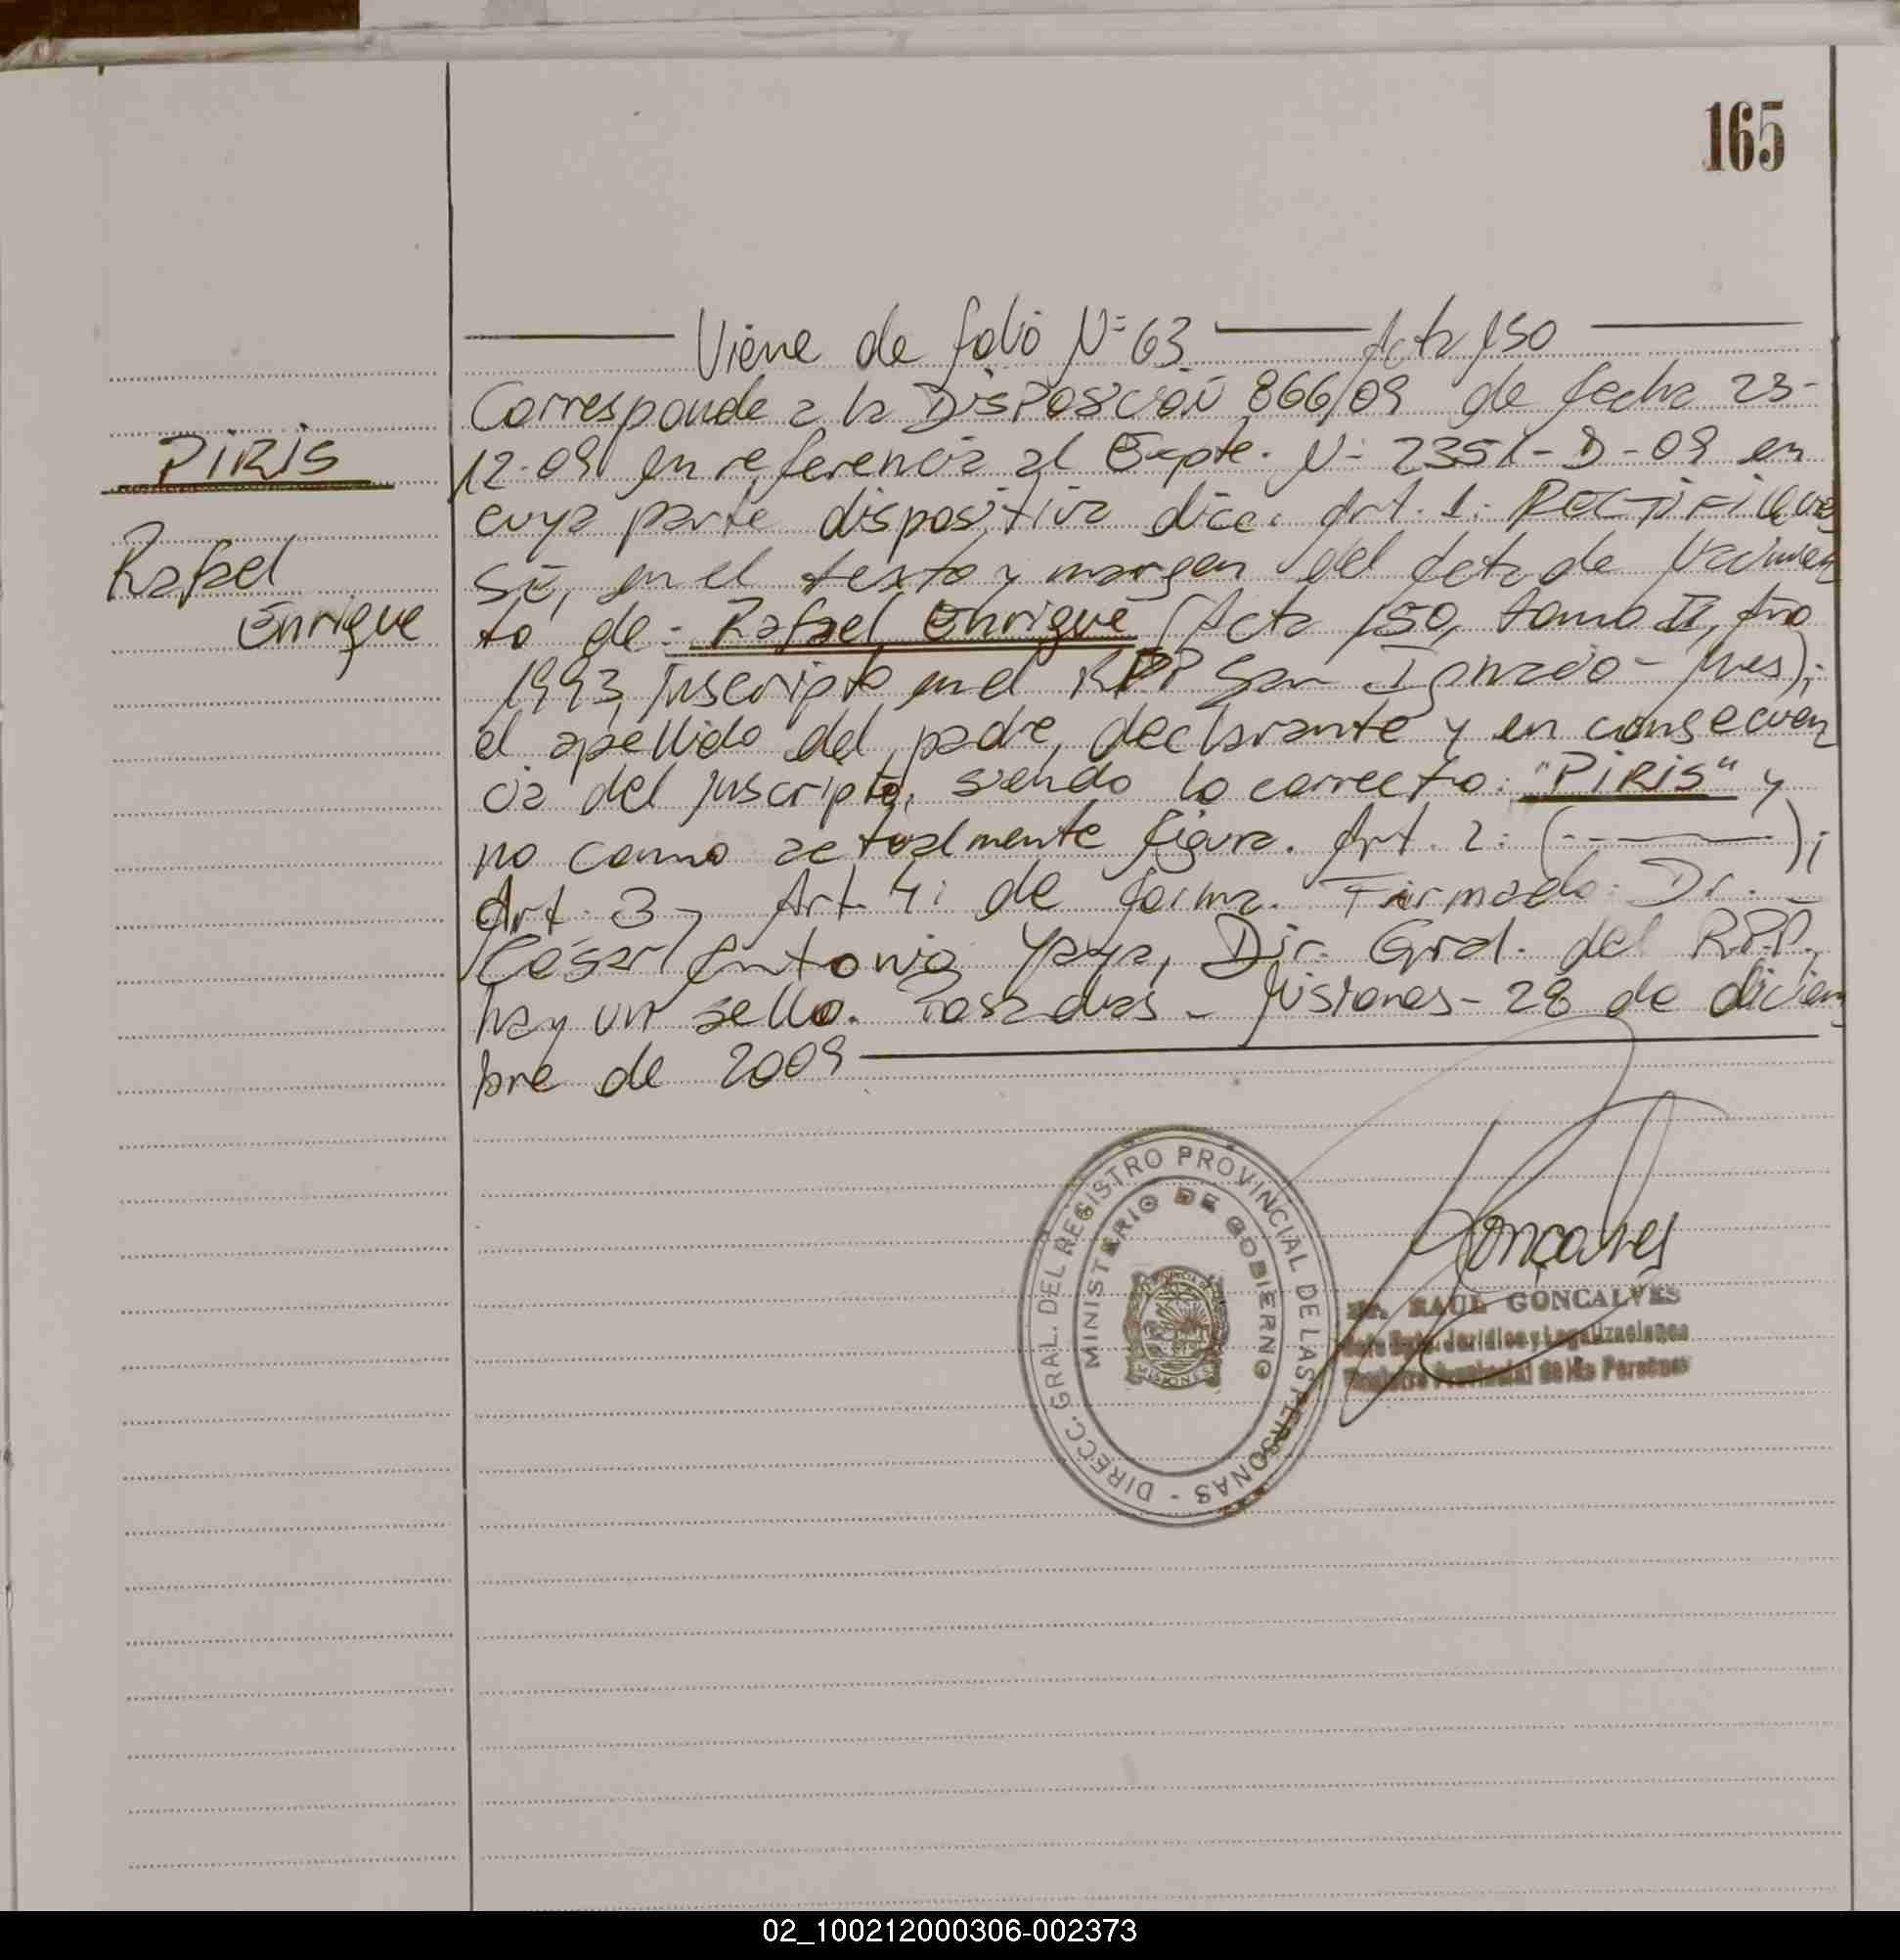 165
Viene de folio Nº 63 Acta 150
Corresponde a la Disposición 866/09 de fecha 23-
PIRIS
12-09 en referencia al Expte. Nº 2351-D-09 en
cuya parte dispositiva dice: Art. 1: RECTIFIQUE
Rafael
SE, en el texto y margen del Acta de Nacimien
Enrique
to de: Rafael Enrique (Acta 150, tomo II, Año
1993, Inscripto en el RPP San Ignacio - Mnes);
el apellido del padre, declarante y en consecuen
cia del Inscripto, siendo lo correcto: "PIRIS" y
no como actualmente figura. Art. 2: (---);
Art. 3 y Art 4: de forma. Firmado: Dr.
César Antonio Yaya, Dir. Gral. del R.P.P.,
hay un sello. Posadas - Misiones - 28 de diciem
bre de 2009
DIRECC. GRAL. DEL REGISTRO PROVINCIAL DE LAS PERSONAS -
MINISTERIO DE GOBIERNO
MISIONES
Goncalves
Dr. RAUL GONCALVES
Jefe Dpto. Jurídico y Legalizaciones
Registro Provincial de las Personas
02_100212000306-002373